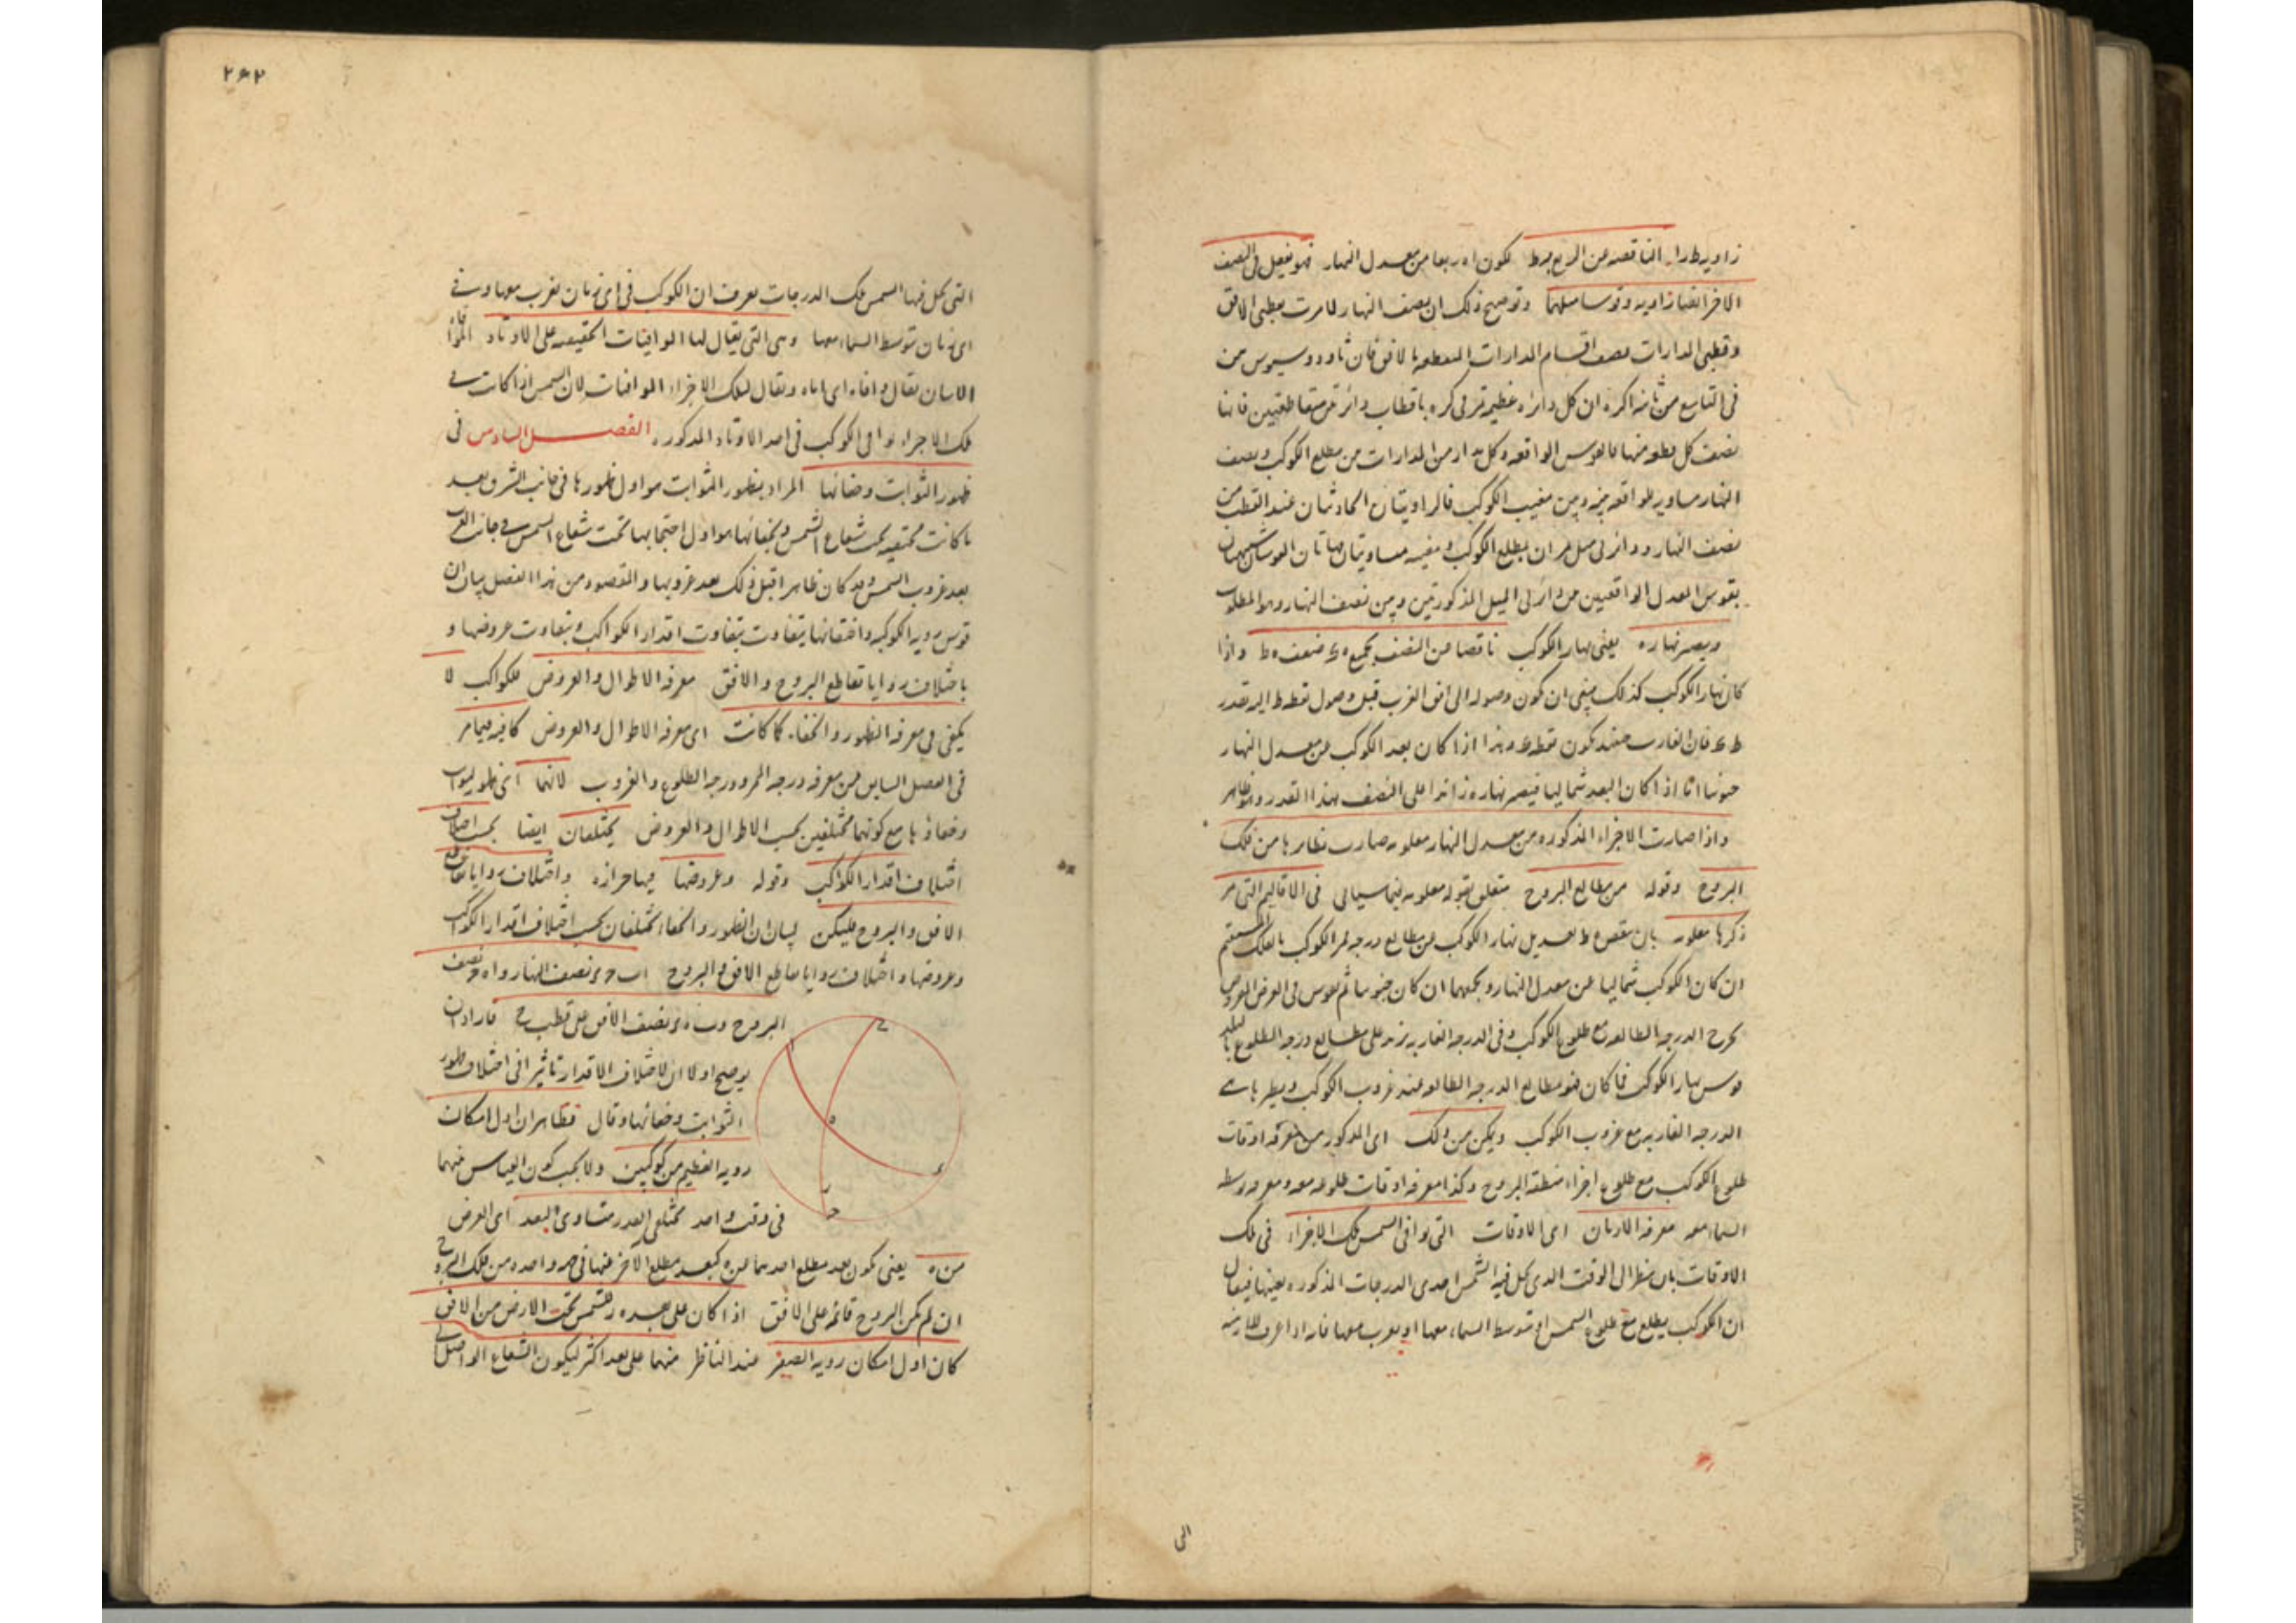 زاوية طرا الناقصة من الربع بـ ه ط لكون ا ه ربعا من معدل النهار فهو يفعل فى النصف
الآخر ايضا زاوية وقوسا مثلهما وتوضيح ذلك ان نصف النهار لما مرت بقطبى الافق
وقطبى المدارات نصف اقسام المدارات المنقطعة بالافق فان ثاودوسيوس بين
فى التاسع من ثانية اكره ان كل دائرة عظيمة تمر فى كرة باقطاب دائرتين متقاطعتين فانها
تنصف كل قطعة منها فالقوس الواقعة وكل مدار من المدارات من مطلع الكوكب ونصف
النهار مساوية للواقعة بينه وبين مغيب الكوكب فالزاويتان الحادثتان عند القطب من
نصف النهار ودائرتى ميل تمران بمطلع الكوكب ومغيبه متساويتان فهاتان القوسان شبيهتان
بقوسى المعدل الواقعتين من دائرتى الميل المذكورتين وبين نصف النهار وهو المطلوب
ويصير نهاره يعنى نهار الكوكب ناقصا من النصف بجميع ه ء ضعف ه ط واذا
كان نهار الكوكب كذلك ينبغى ان يكون وصوله الى افق الغرب قبل وصول نقطة ط اليه بقدر
ط ء فان الغارب حينئذ يكون نقطة ء وهذا اذا كان بعد الكوكب عن معدل النهار
جنوبيا اما اذا كان البعد شماليا فيصير نهاره زائدا على النصف بهذا القدر وهو ظاهر
واذا صارت الاجزاء المذكورة من معدل النهار معلومة صارت نظائرها من فلك
البروج وقوله من مطالع البروج متعلق بقوله معلومة فيما سياتى فى الاقاليم التى مر
ذكرها معلومة بان ينقص تعديل نهار الكوكب من مطالع درجة ممر الكوكب بالفلك المستقيم
ان كان الكوكب شماليا عن معدل النهار ويجمعهما ان كان جنوبيا ثم يقوس فى العرض المعروض
يخرج الدرجة الطالعة مع طلوع الكوكب وفى الدرجة الغاربة يزيد على مطالع درجة الطلوع للبلد
قوس نهار الكوكب فما كان فهو مطالع الدرجة الطالعة عند غروب الكوكب ونظيرها هى
الدرجة الغاربة مع غروب الكوكب ويمكن من ذلك اى المذكور من معرفة اوقات
طلوع الكوكب مع طلوع اجزاء منطقة البروج وكذا معرفة اوقات طلوعه معه وتوسطه
السماء معه معرفة الازمان اى الاوقات التى توافى الشمس تلك الاجزاء فى تلك
الاوقات بان ينظر الى الوقت الذى تحل فيه الشمس احدى الدرجات المذكورة بعينها فيقال
ان الكوكب يطلع مع طلوع الشمس او يتوسط السماء معها او يغرب معها فانه اذا عرف الازمنة
الى
٢٤٢
التى تحل فيها الشمس تلك الدرجات يعرف ان الكوكب فى اى زمان يغرب معها وفى
اى زمان يتوسط السماء معها وهى التى يقال لها الموافيات الحقيقية على الاوتاد
الاتيان يقال وافاه اى اتاه ويقال لتلك الاجزاء الموافيات لان الشمس اذا كانت فى
تلك الاجزاء توافى الكوكب فى احد الاوتاد المذكورة الفصل السادس فى
ظهور الثوابت وخفائها المراد بظهور الثوابت هو اول ظهورها فى جانب الشرق بعد
ما كانت مختفية تحت شعاع الشمس وبخفائها هو اول احتجابها تحت شعاع الشمس فى جانب الغرب
بعد غروب الشمس وقد كان ظاهرا قبل ذلك بعد غروبها والمقصود من هذا الفصل بيان ان
قوس رؤية الكوكب واختفائها يتفاوت بتفاوت اقدار الكواكب وبتفاوت عروضها و
باختلاف زوايا تقاطع البروج والافق معرفة الاطوال والعروض للكواكب لا
يكفى فى معرفة الظهور والخفاء كما كانت اى معرفة الاطوال والعروض كافية فيما مر
فى الفصل السابق من معرفة درجة الممر ودرجة الطلوع والغروب لانهما اى ظهور الثوابت
وخفاؤها مع كونهما مختلفين بحسب الاطوال والعروض يختلفان ايضا بحسب اختلاف
اختلاف اقدار الكواكب وقوله وعروضها واختلاف زوايا تقاطع
الافق والبروج فليكن لبيان ان الظهور والخفاء يختلفان بحسب اختلاف اقدار الكواكب
وعروضها واختلاف زوايا تقاطع الافق والبروج ا ب ح ء نصف النهار و ا ه ء نصف
البروج و ب ه ء نصف الافق على قطب ح فاراد ان
يوضح اولا ان لاختلاف الاقدار تاثيرا فى اختلاف ظهور
الثوابت وخفائها وقال فظاهر ان اول امكان
رؤية العظيم من كوكبين ولا يجب كون القياس منهما
فى وقت واحد مختلفى القدر متساوى البعد اى العرض
من ه يعنى يكون بعد مطلع احدهما من ه كبعد مطلع الآخر عنها فى جهة واحدة من فلك البروج
ان لم يكن البروج قائمة على الافق اذا كان على بعد ه ر للشمس تحت الارض من الافق
كان اول امكان رؤية الصغير عند الناظر منهما على بعد اكثر ليكون الشعاع الواصل